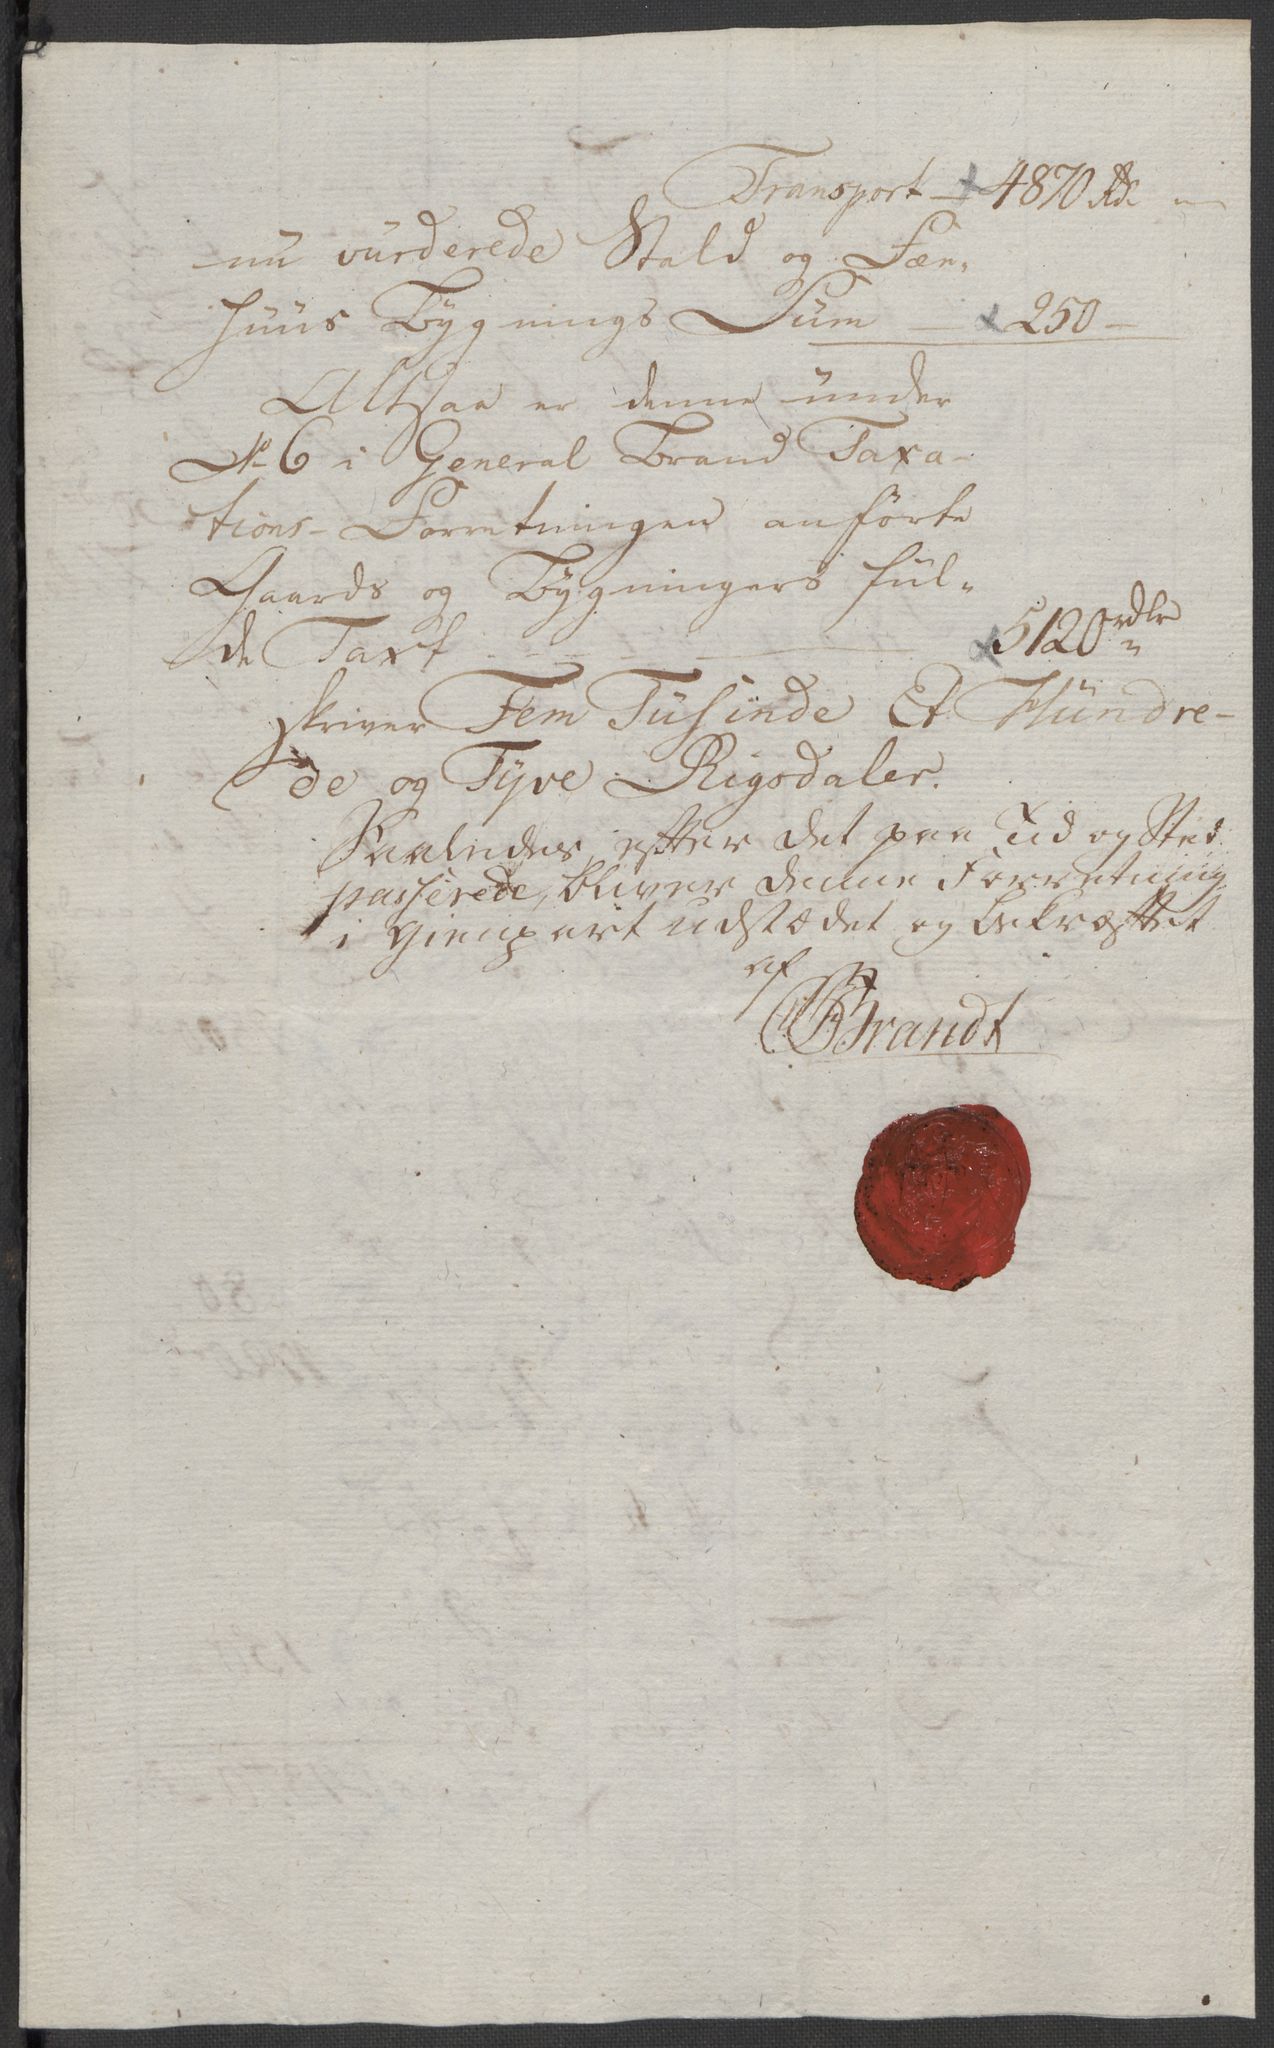 Transport - 4870 Rdr
nu vurderede Stald og Fæe-
huus Bygnings Sum 250 -
Altsaa er denne under
No 6 i General Brand Taxa-
tions-Forretningen anførte
Gaards og Bygningers ful-
de Taxt 5120 rdlr
skriver Fem Tusinde Et Hundre-
de og Tyve Rigsdaler.
Saaledes efter det paa Tid og Sted
passerede, bliver denne Forretning
i Gienpart udstædet og bekræftet
af
Brandt